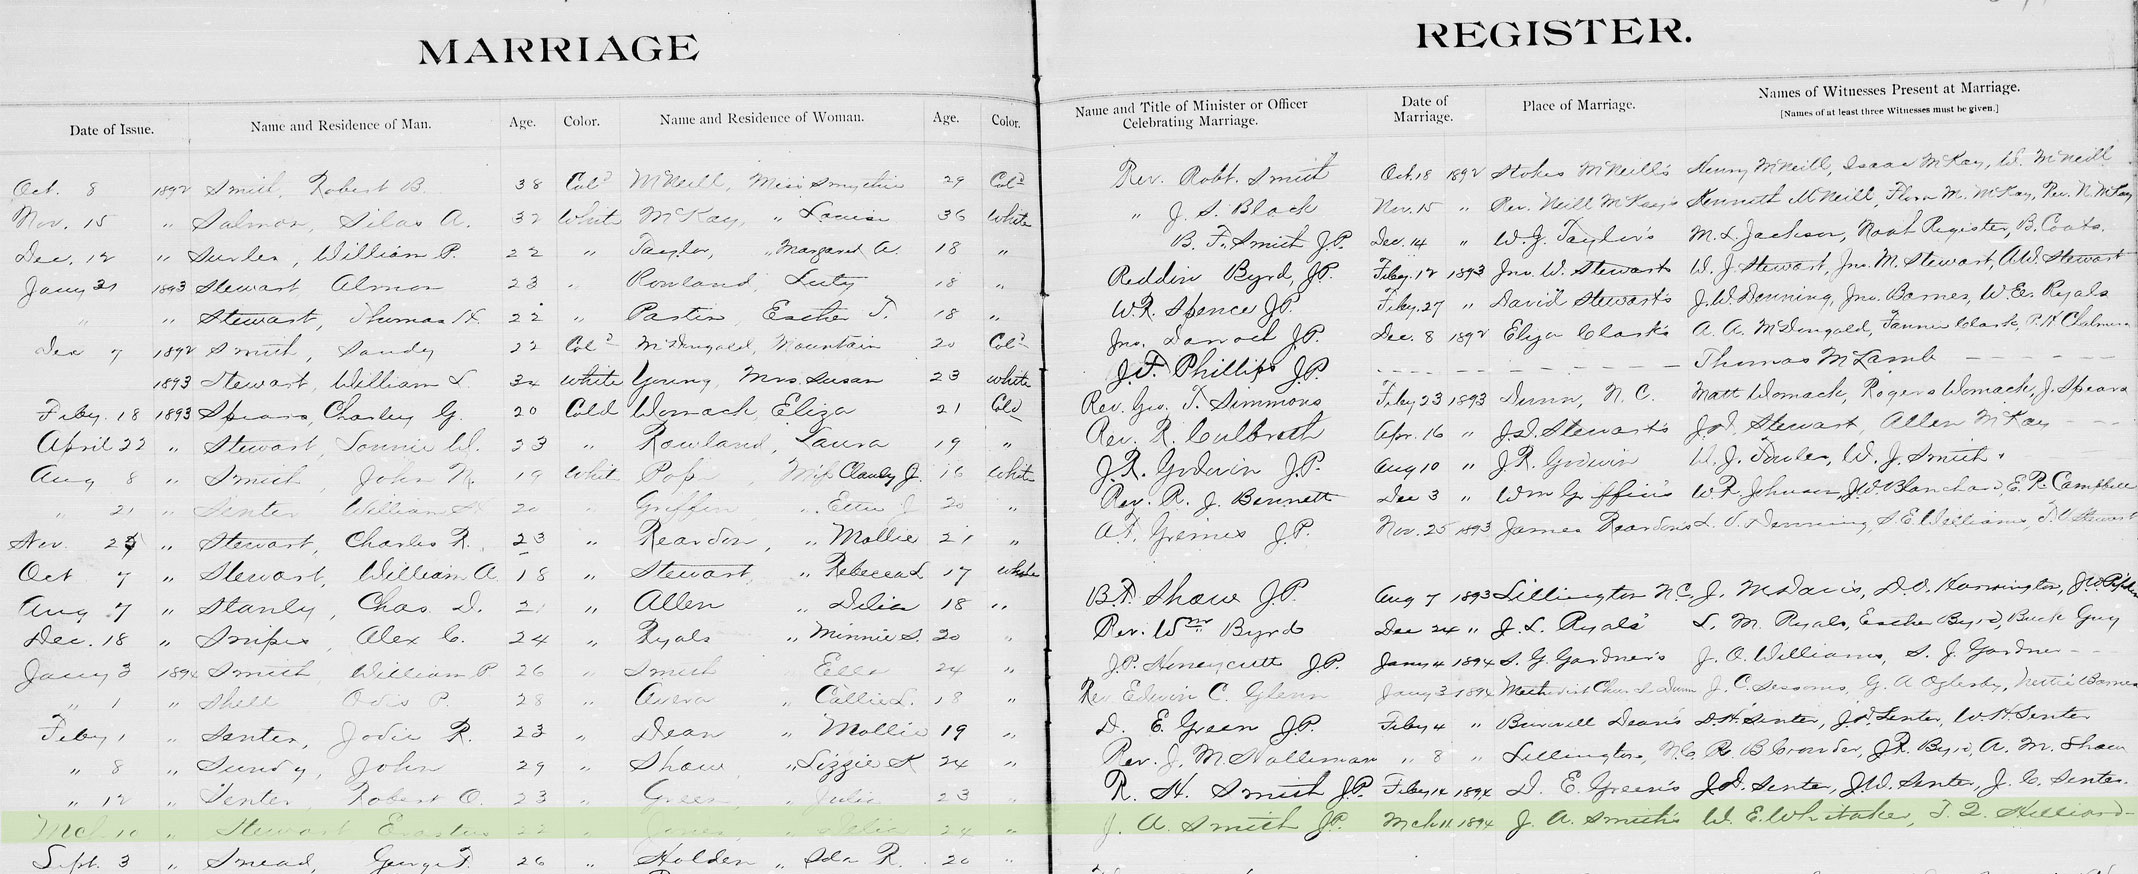 MARRIAGE REGISTER.
Date of Issue. Name and Residence of Man. Age. Color. Name and Residence of Woman. Age. Color. Name and Title of Minister or Officer Celebrating Marriage. Date of Marriage. Place of Marriage. Names of Witnesses Present at Marriage. [Names of at least three Witnesses must be given.]
Oct. 8 1892 Smith, Robert B. 38 Cold McNeill, Miss 29 Cold Rev. Robt. Smith Oct. 18 1892 Stokes McNeill's Henry McNeill, Isaac McKay, W. McNeill
Nov. 15 " Salmon, Silas A. 32 White McKay, " Louisa 36 White " J. S. Black Nov. 15 " Rev. Neill McKay's Kenneth McNeill, Flora M. McKay, Rev. N. McKay
Dec. 12 " William P. 22 " Taylor, " Margaret A. 18 " B. F. Smith J.P. Dec. 14 " W. J. Taylor's M. L. Jackson, Noah Register, B. Coats.
Jany 31 1893 Stewart Almon 23 " Rowland, Luty 18 " Reddin Byrd, J.P. Feby. 12 1893 Jno. W. Stewarts W. J. Stewart, Jno. M. Stewart, A.W. Stewart
" " Stewart, Thomas H. 22 " Esther T. 18 " W. R. Spence J.P. Feby. 27 " David Stewart's J. W. Denning, Jno. Barnes, W. E. Ryals
Dec 7 1892 Smith, Sandy 22 Cold McDougald, Mountain 20 Cold Jno. Darroch J.P. Dec. 8 1892 Eliza Clark's A. A. McDougald, Fannie Clark, P. H. Chalmers
1893 Stewart, William L. 34 White Young, Mrs. Susan 23 white J. F. Phillips J.P. Thomas McLamb
Feby. 18 1893 Spears, Charley G. 20 Cold Womack, Eliza 21 Cold Rev. Geo. T. Simmons Feby 23 1893 Dunn, N. C. Matt Womack, Rogers Womack, J. Spears
April 22 " Stewart, Lonnie W. 23 " Rowland, Laura 19 " Rev. R. Culbreth Apr. 16 " J. D. Stewarts J. D. Stewart, Allen McKay
Aug 8 " Smith, John N. 19 Whit Pope, Miss J. 16 White J. R. Godwin J.P. Aug 10 " J. R. Godwin W. J. Fowler, W. J. Smith
" 21 " Senter William 20 " Griffin " Etta J 20 " Rev. R. J. Bennett Dec 3 " Wm Griffin's W. R. Johnson, J. W. Blanchard, E. R. Campbell
Nov. 25 " Stewart, Charles R. 23 " Reardon, " Mollie 21 " A. F. Grimes J.P. Nov. 25 1893 James Reardon's L. V. Denning, S. E. Williams, Stewart
Oct 7 " Stewart, William A. 18 " Stewart, " Rebecca L 17 White
Aug 7 " Stanly, Chas. D. 21 " Allen " Delia 18 " B. F. Shaw J.P. Aug 7 1893 Lillington N.C. J. McDavis, D. O. Harrington,
Dec. 18 " Snipes Alex C. 24 " Ryals " Minnie S. 20 " Rev. Wm Byrd Dec 24 " J. L. Ryals' L. M. Ryals, Esther Byrd, Buck Guy
Jany 3 1894 Smith William P. 26 " Smith Ella 24 " J. P. Honeycutt J.P. Jany 4 1894 S. G. Gardner's J. O. Williams, S. J. Gardner
" 1 " Shell Odis P. 28 " Avera " Callie L. 18 " Rev Edwin C. Glenn Jany 3 1894 Methodist Church Dunn J. C. Sessoms, G. A Oglesby, Nettie Barnes
Feby 1 " Senter, Jodie R. 23 " Dean " Mollie 19 " D. E. Green J.P. Feby 4 " Burwell Dean's D. H. Senter, J. D. Senter, W. H. Senter
" 8 " Sundy, John 29 " Shaw, " Lizzie K 24 " Rev. J. M. Holleman " 8 " Lillington, N.C. R. B. Crowder, J. R. Byrd, A. M. Shaw
" 12 " Senter, Robert O. 23 " Green, " Julia 23 " R. H. Smith J.P. Feby 14 1894 D. E. Green's J. D. Senter, J. W. Senter, J. C. Senter.
Mch 10 " Stewart Erastus 22 " Jones " Delia 24 " J. A. Smith J.P. Mch 11 1894 J. A. Smith's W. E. Whitaker, T. Q. Hilliard
Sept. 3 " Snead, George T. 26 " Holden " Ida R. 20 "